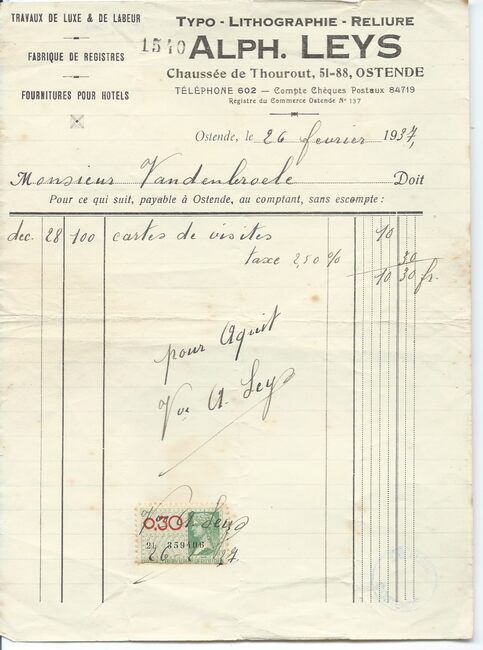 TRAVAUX DE LUXE & DE LABEUR
FABRIQUE DE REGISTRES
FOURNITURES POUR HOTELS
TYPO - LITHOGRAPHIE - RELIURE
1510 ALPH. LEYS
Chaussée de Thourout, 51-88, OSTENDE
TÉLÉPHONE 602 — Compte Chèques Postaux 84719
Registre du Commerce Ostende N° 137
Ostende, le 26 fevrier 1937,
Monsieur Vandenbroele Doit
Pour ce qui suit, payable à Ostende, au comptant, sans escompte :
dec. 28 100 cartes de visites 10
taxe 2,50 % 30
10 30 fr.
pour Aquit
Vve A. Leys
0.30
Vve A. Leys
359406
26 2 37